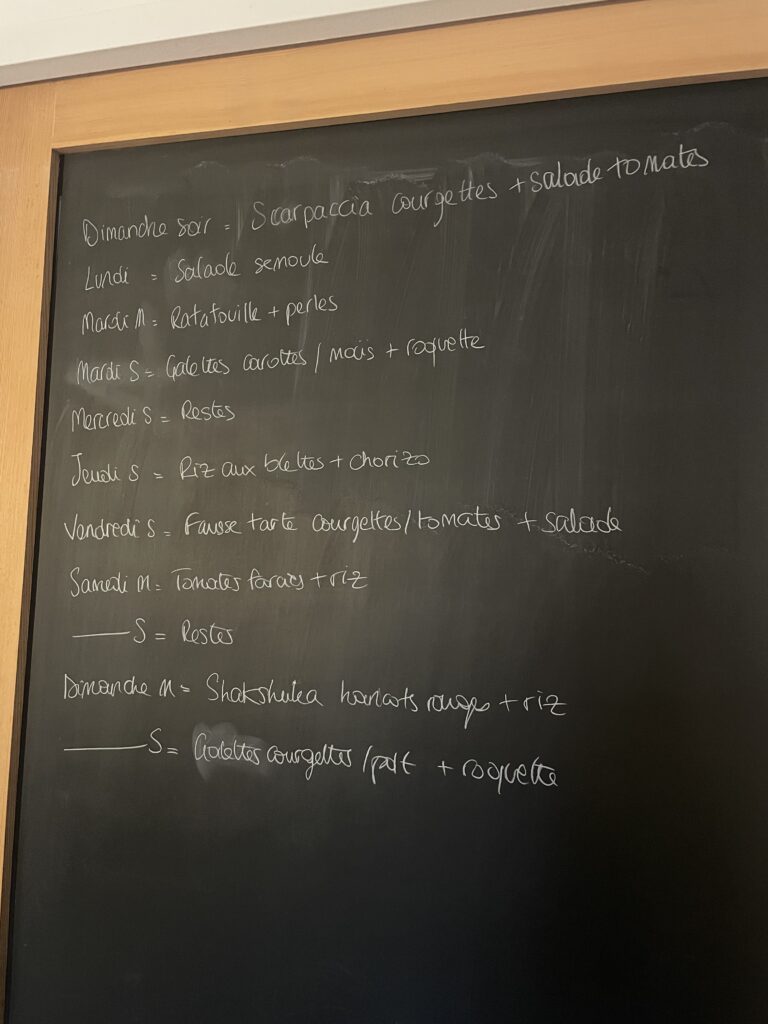 Dimanche soir = Scarpaccia courgettes + salade tomates
Lundi = Salade semoule
Mardi M = Ratatouille + perles
Mardi S = Galettes carottes / maïs + roquette
Mercredi S = Restes
Jeudi S = Riz aux blettes + chorizo
Vendredi S = Fausse tarte courgettes/tomates + salade
Samedi M = Tomates farcies + riz
—— S = Restes
Dimanche M = Shakshuka haricots rouges + riz
—— S = Galettes courgettes / + roquette